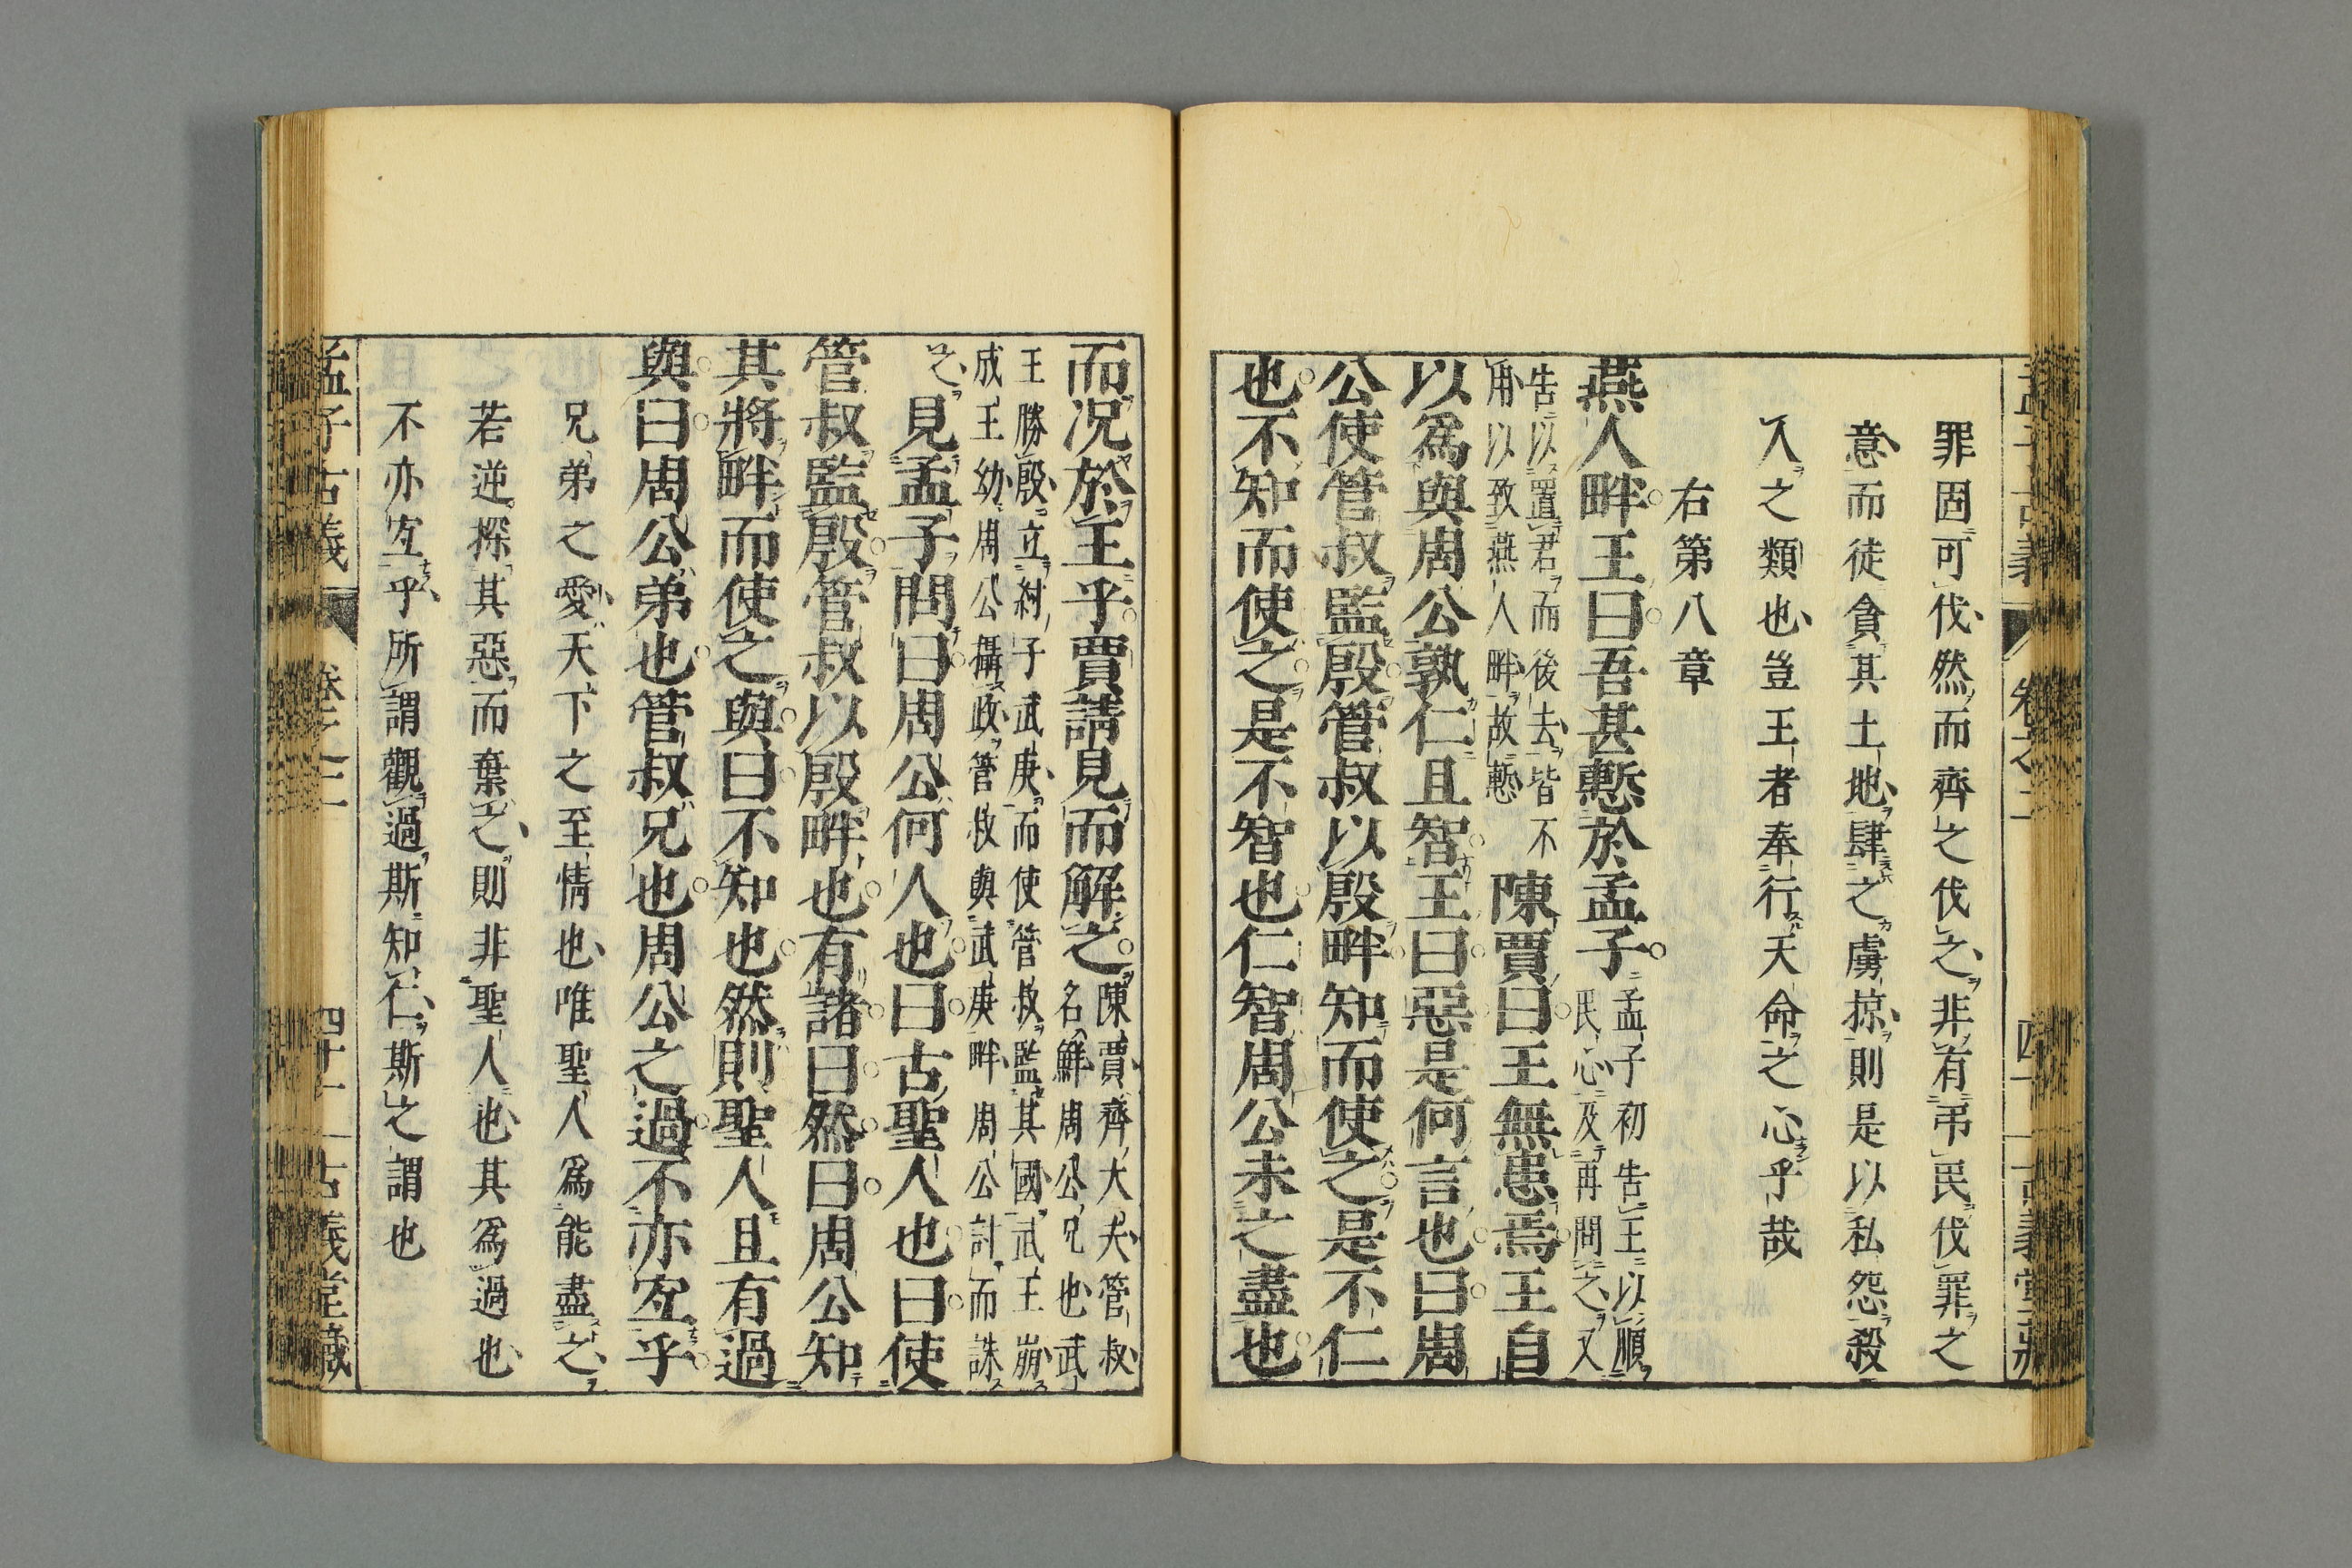 罪固可伐然而齊之伐之非有弔民伐罪之
意而徒貪其土地肆之虜掠則是以私怨殺
人之類也豈王者奉行天命之心乎哉
右第八章
燕人畔王曰吾甚慙於孟子
孟子初告王以順
民心及再問之又
告以置君而後去皆不
用以致燕人畔故慙
陳賈曰王無患焉王自
以爲與周公孰仁且智王曰惡是何言也曰周
公使管叔監殷管叔以殷畔知而使之是不仁
也不知而使之是不智也仁智周公未之盡也
而况於王乎賈請見而解之
陳賈齊大夫管叔
名鮮周公兄也武
王勝殷立紂子武庚而使管叔監其國武王崩
成王幼周公攝政管叔與武庚畔周公討而誅
之
見孟子問曰周公何人也曰古聖人也曰使
管叔監殷管叔以殷畔也有諸曰然曰周公知
其將畔而使之與曰不知也然則聖人且有過
與曰周公弟也管叔兄也周公之過不亦宐乎
兄弟之愛天下之至情也唯聖人爲能盡之
若逆探其惡而棄之則非聖人也其爲過也
不亦宐乎所謂觀過斯知仁斯之謂也
孟子古義
卷之二
四十一
古義堂藏